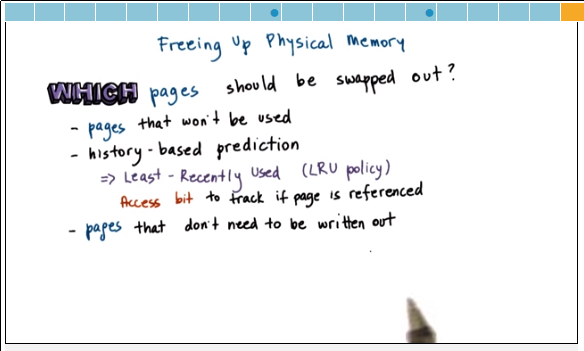 Freeing Up Physical Memory
WHICH pages should be swapped out?
- pages that won't be used
- history-based prediction
=> Least-Recently Used (LRU policy)
Access bit to track if page is referenced
- pages that don't need to be written out